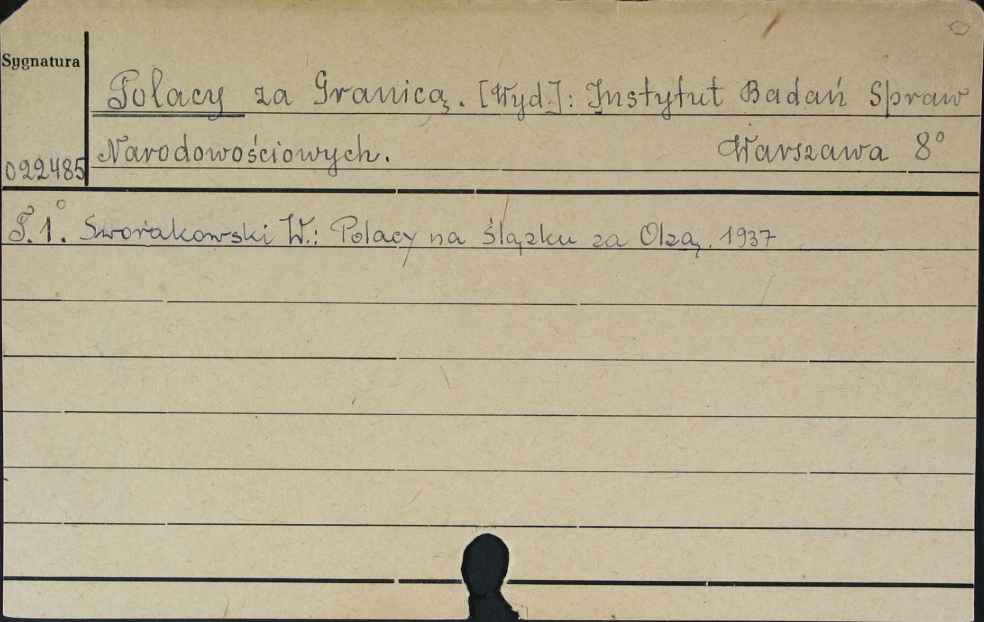 Sygnatura
Polacy za Granicą. [Wyd.]: Instytut Badań Spraw
Narodowościowych. Warszawa 8°
022485
T. 1.° Sworakowski W.: Polacy na Ślązku za Olzą. 1937